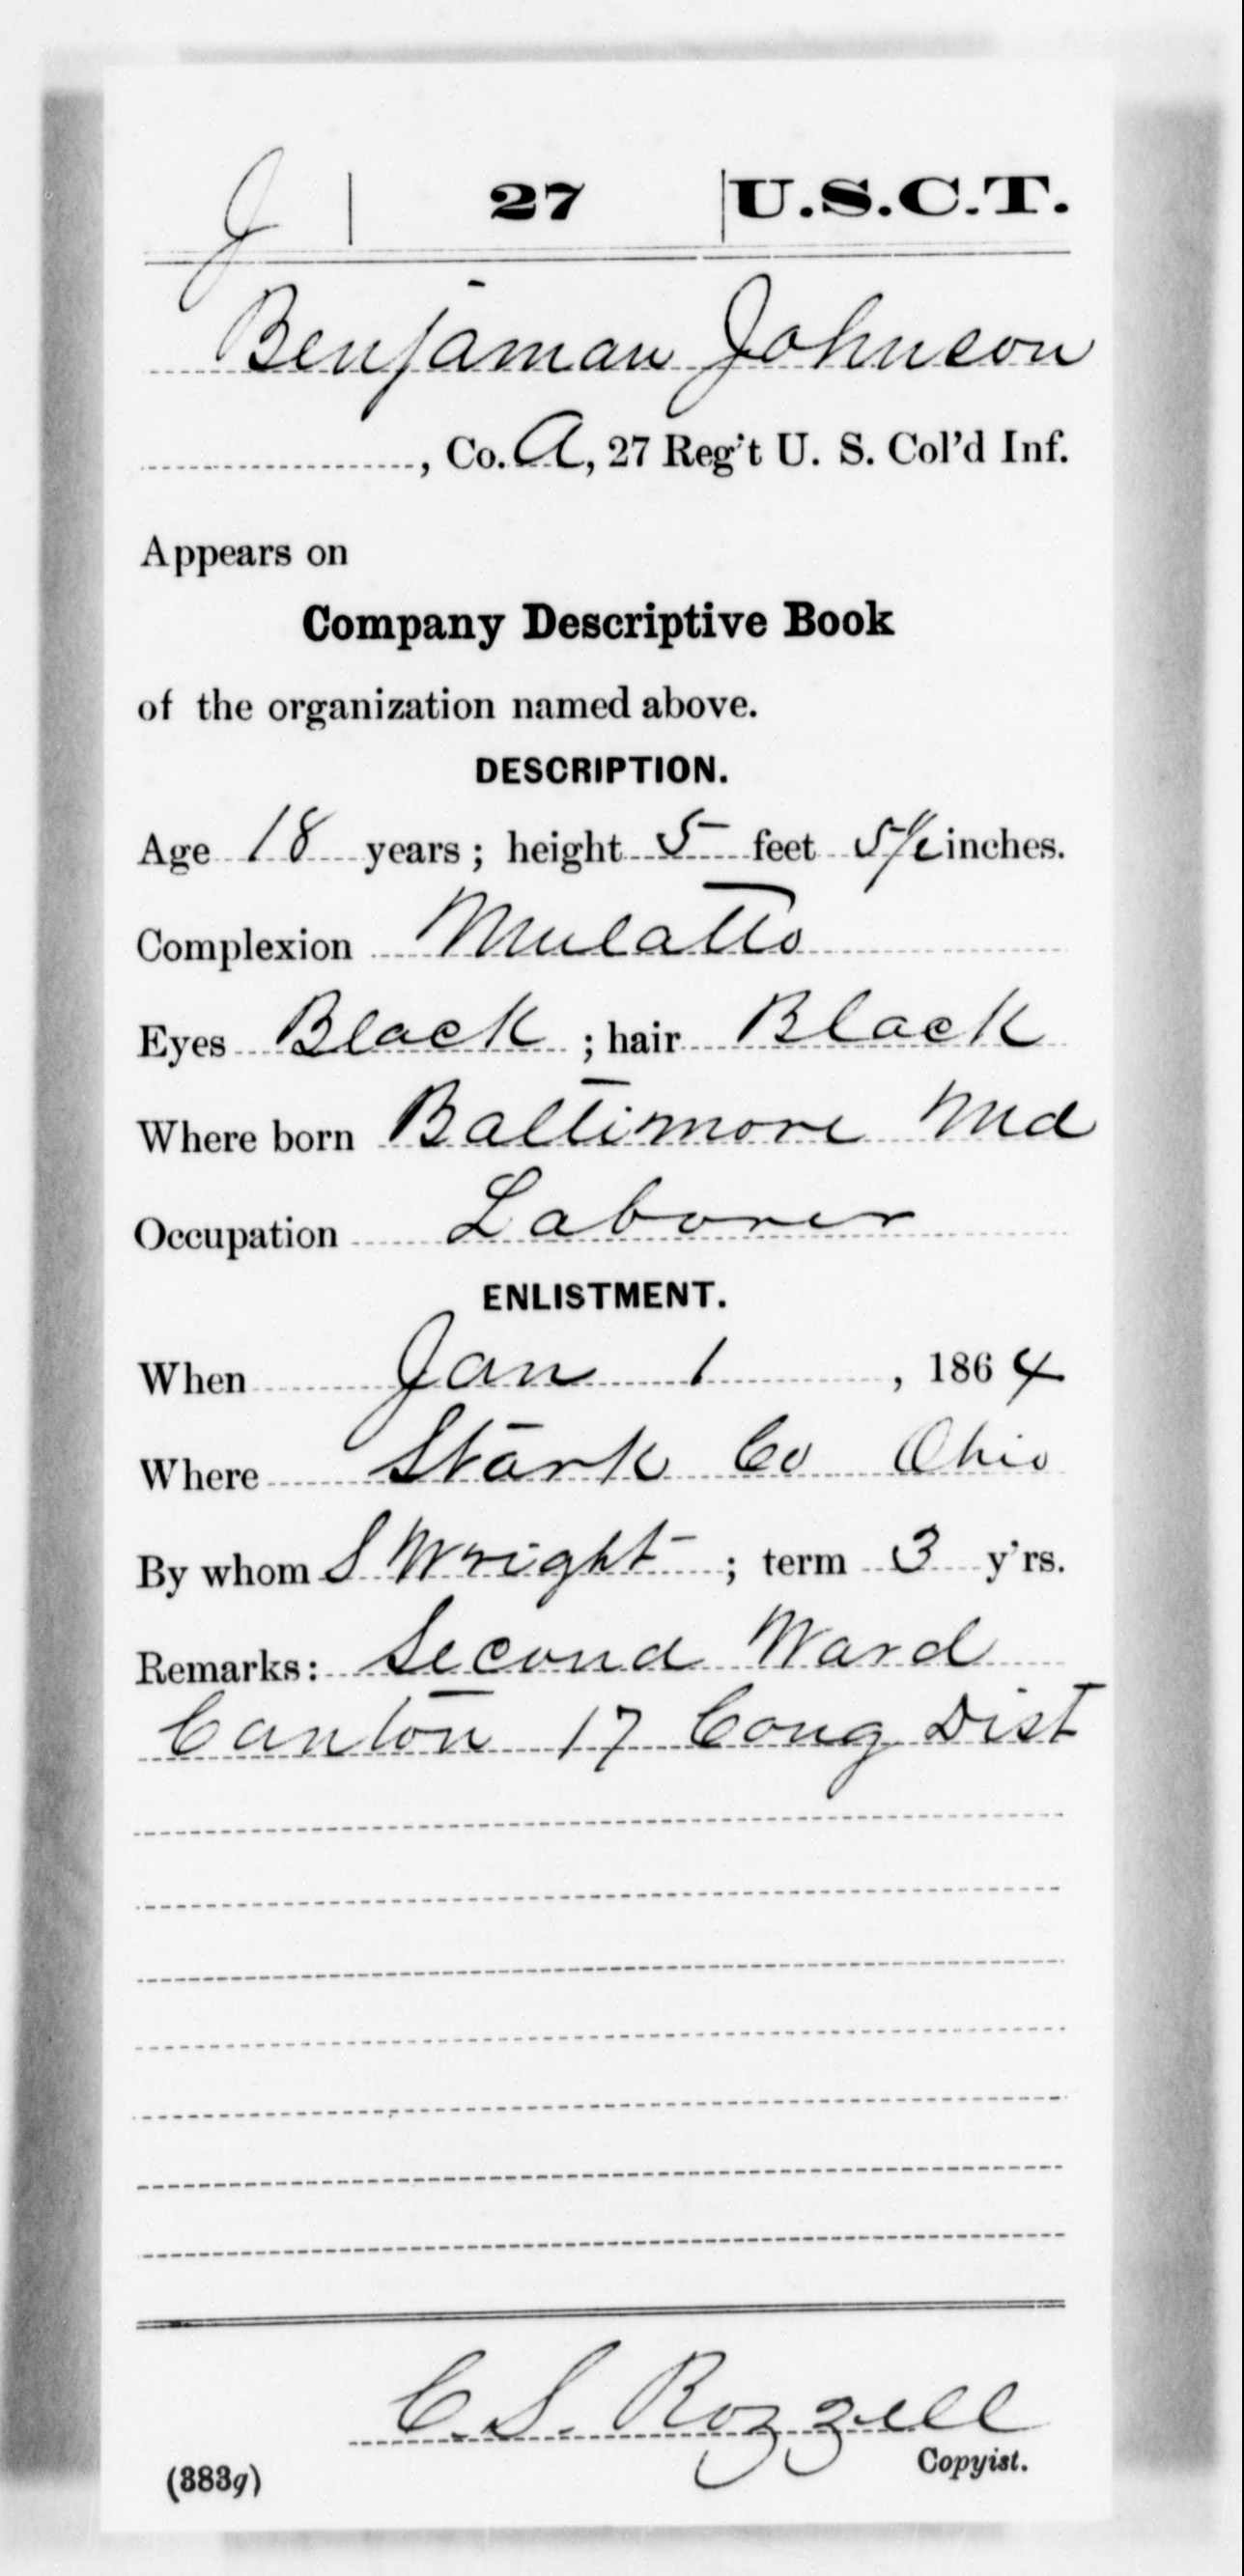 J | 27 | U.S.C.T.
Benjaman Johnson
, Co. A, 27 Reg't U. S. Col'd Inf.
Appears on
Company Descriptive Book
of the organization named above.
DESCRIPTION.
Age 18 years; height 5 feet 5 1/2 inches.
Complexion Mulatto
Eyes Black; hair Black
Where born Baltimore Md
Occupation Laborer
ENLISTMENT.
When Jan 1, 1864
Where Stark Co Ohio
By whom S Wright; term 3 y'rs.
Remarks: Second Ward
Canton 17 Cong Dist
C. S. Rozzell
Copyist.
(383g)